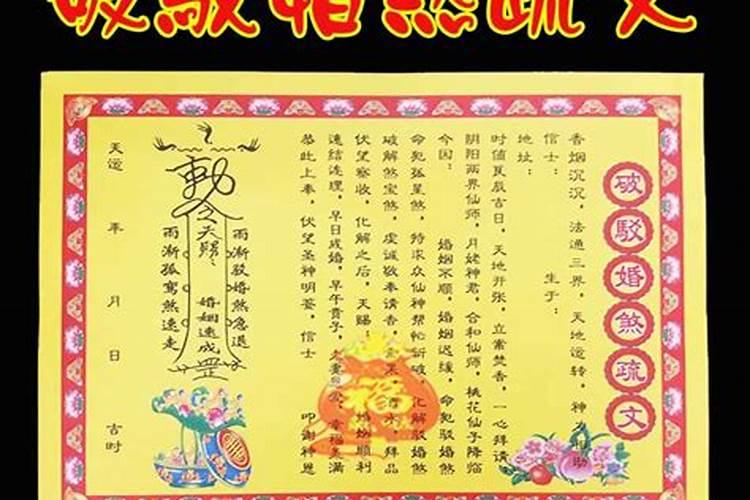 破駁婚煞疏文
破駁婚煞疏文
香烟沉沉，法通三界，天地运转，神为相助
信士： 生于：
地址：
时值良辰吉日，天地开张，立案焚香，一心拜请
阴阳两界仙师，月姥神君，合和仙师，桃花仙子降临
今因： 婚姻不顺，婚姻迟缓，命犯驳婚煞
命犯孤星煞，特求众仙神帮忙祈破，化解驳婚煞
破解煞宝煞，虔诚敬奉请香，拜品
伏望察收，化解之后，天赐 婚姻顺利
速结连理，早日成婚，早午贵子，夫妻恩爱，幸福美满
恭此上奉，伏望圣神明鉴，信士 叩谢神恩
雨渐驳婚煞急退
勅令
天赐 婚姻速成
罡
雨渐孤鸾煞速走
天运 年 月 日 吉时
福